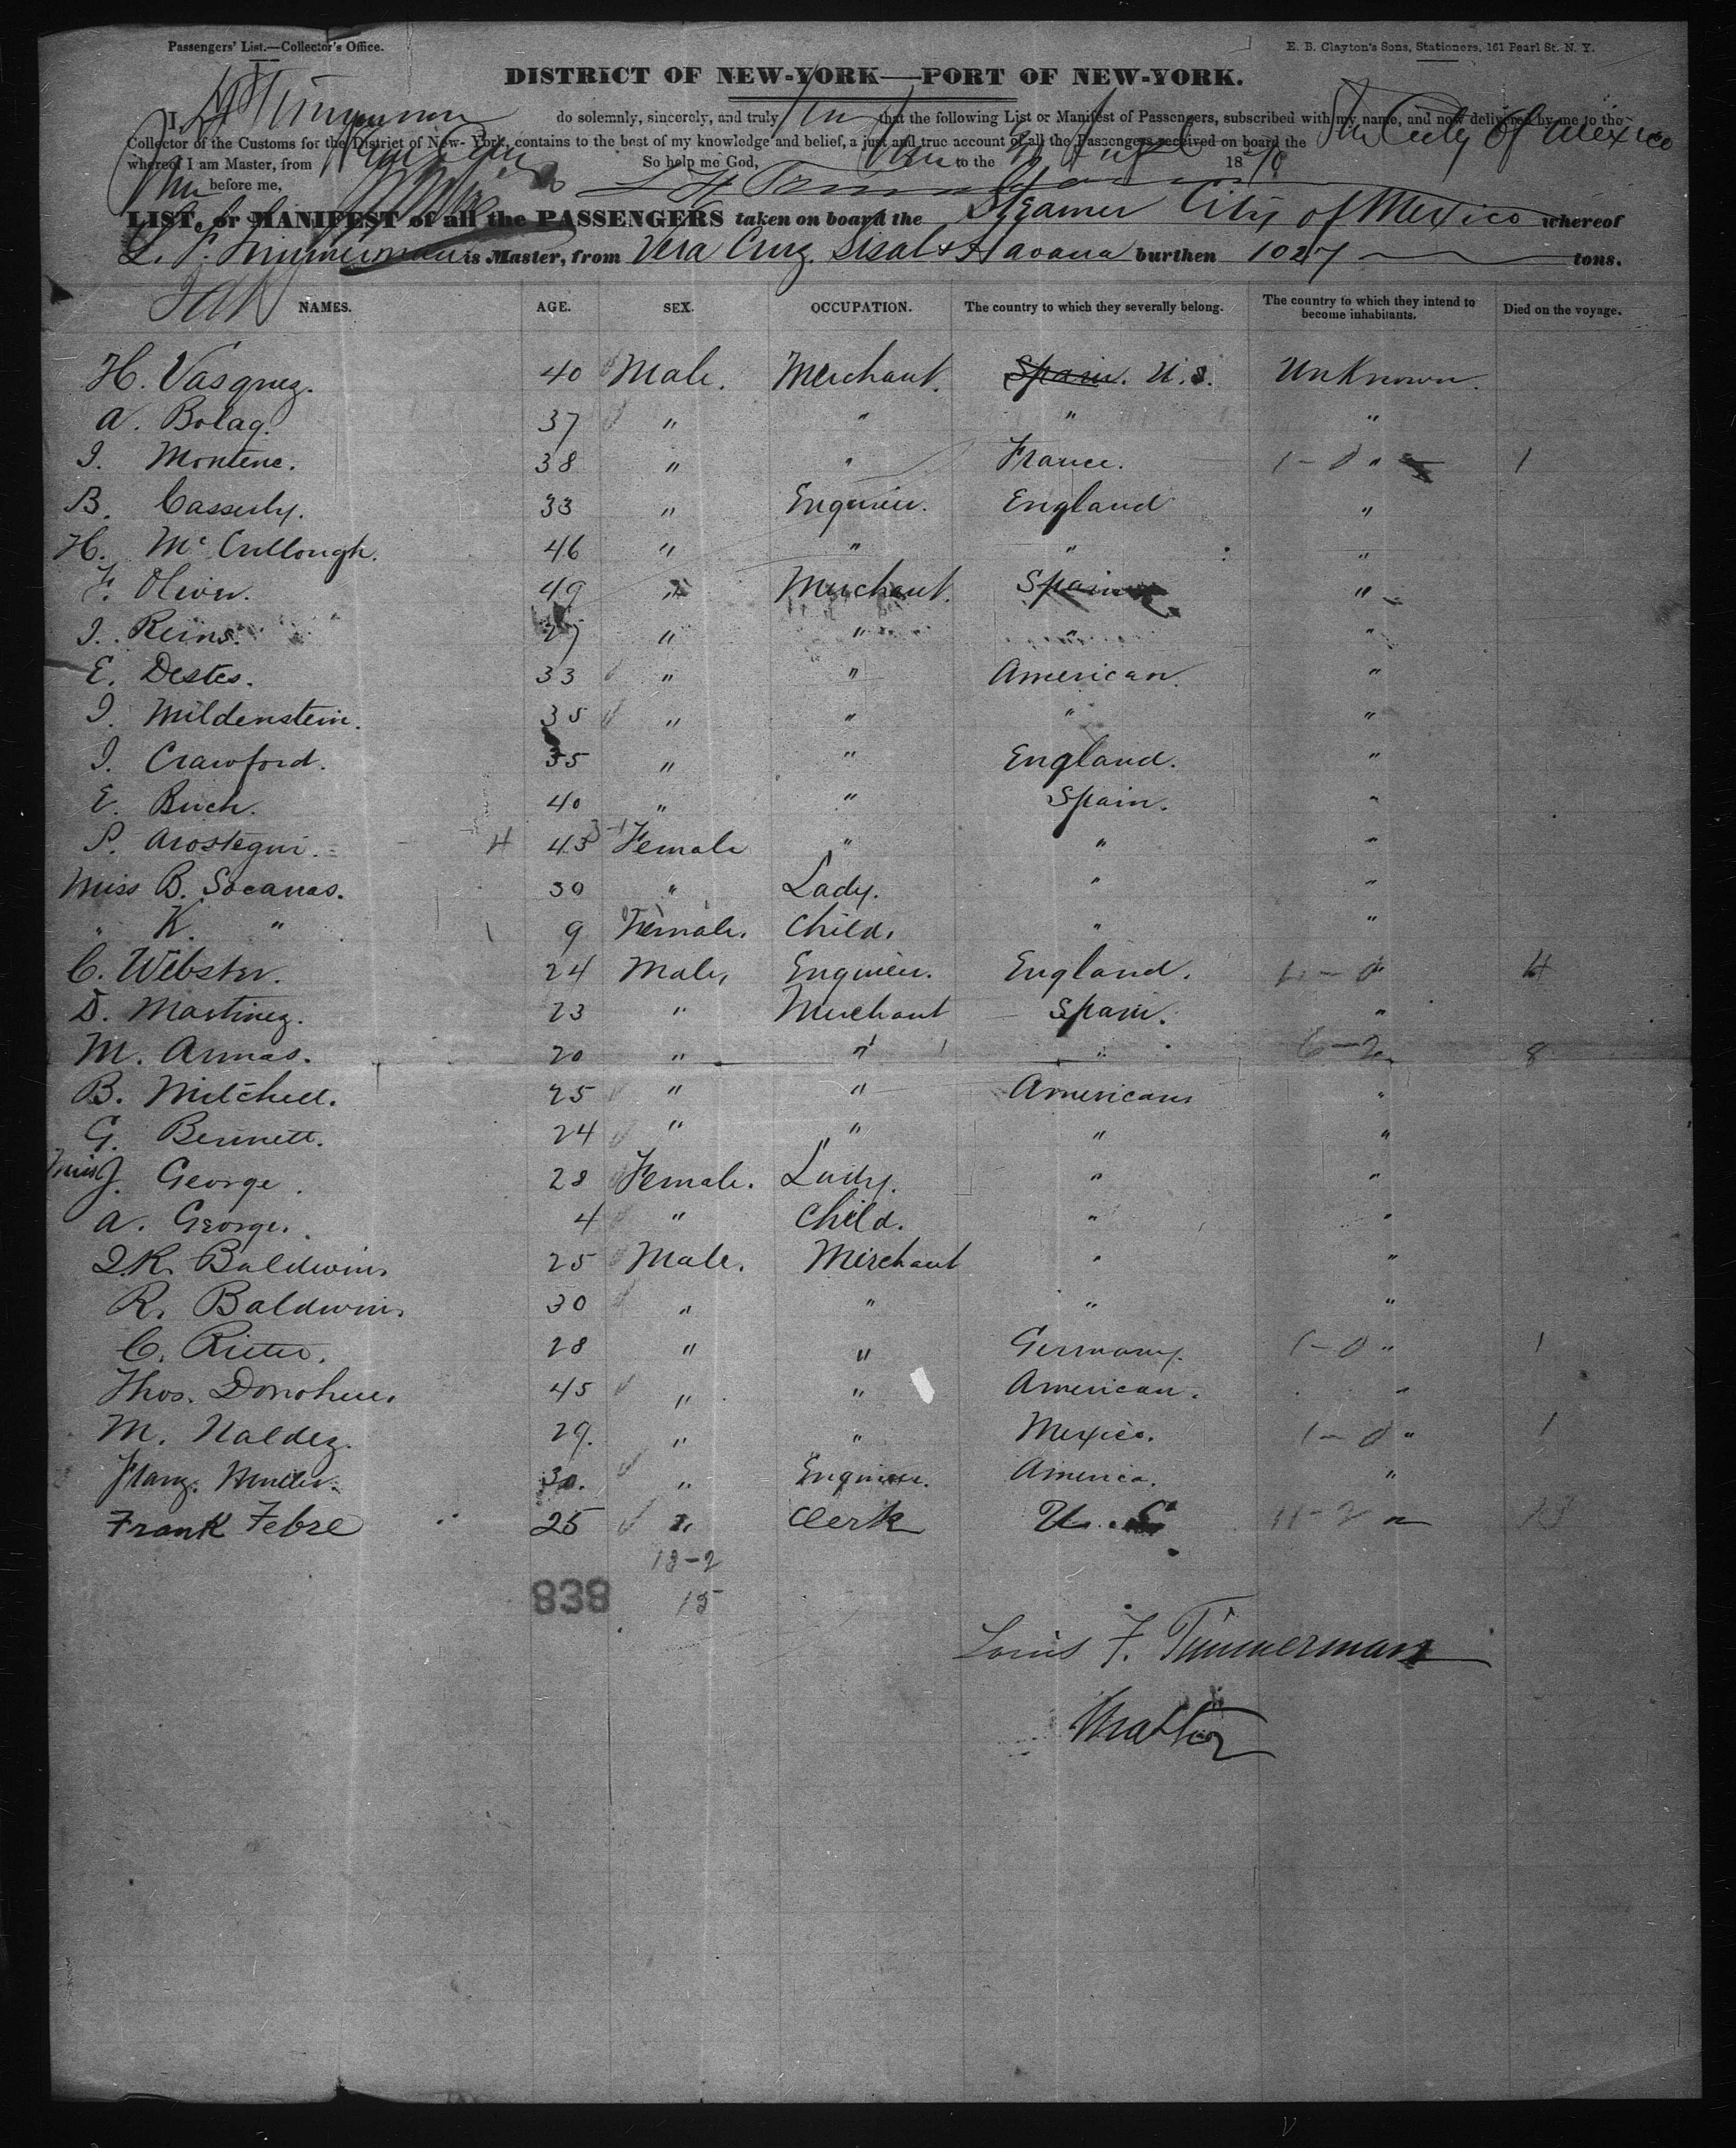 Passengers' List.—Collector's Office.
E. B. Clayton's Sons, Stationers, 161 Pearl St. N. Y.
DISTRICT OF NEW-YORK—PORT OF NEW-YORK.
I, do solemnly, sincerely, and truly that the following List or Manifest of Passengers, subscribed with my name, and now delivered by me to the
Collector of the Customs for the District of New-York, contains to the best of my knowledge and belief, a just and true account of all the Passengers received on board the The City of Mexico
whereof I am Master, from Vera Cruz So help me God, to the 18
before me,
LIST, or MANIFEST of all the PASSENGERS taken on board the Steamer City of Mexico whereof
L. F. Timmerman is Master, from Vera Cruz, Sisal & Havana burthen 1027 tons.
NAMES. AGE. SEX. OCCUPATION. The country to which they severally belong. The country to which they intend to become inhabitants. Died on the voyage.
H. Vasquez. 40 Male. Merchant. Spain. U.S. Unknown.
A. Bolag. 37 " " " "
I. Montene. 38 " " France. 1-0 " 1
B. Casserly. 33 " Engineer. England "
H. McCullough. 46 " " " "
F. Oliver. 49 " Merchant. Spain "
I. Reins. 27 " " " "
E. Destes. 33 " " American. "
I. Mildenstein. 35 " " " "
I. Crawford. 35 " " England. "
E. Buch. 40 " " Spain. "
P. Arostegui. 4 43 3-1 Female " " "
Miss B. Socarras. 30 " Lady. " "
" K. " 1 9 Female. Child. " "
C. Webster. 24 Male, Engineer. England. 4-0 " 4
D. Martinez. 23 " Merchant Spain. "
M. Armas. 20 " " " 6-2 " 8
B. Mitchell. 25 " " American "
G. Bennett. 24 " " " "
Miss J. George. 28 Female. Lady. " "
A. George. 4 " Child. " "
I.R. Baldwin. 25 Male. Merchant " "
R. Baldwin. 30 " " " "
C. Ritter. 28 " " Germany. 1-0 " 1
Thos. Donohue. 45 " " American. "
M. Naldez. 29. " " Mexico. 1-0 " 1
Franz. Muller. 30. " Engineer. America. "
Frank Febre 25 " Clerk U.S. 11-2 " 13
13-2
838 15
Louis F. Timmerman
Master